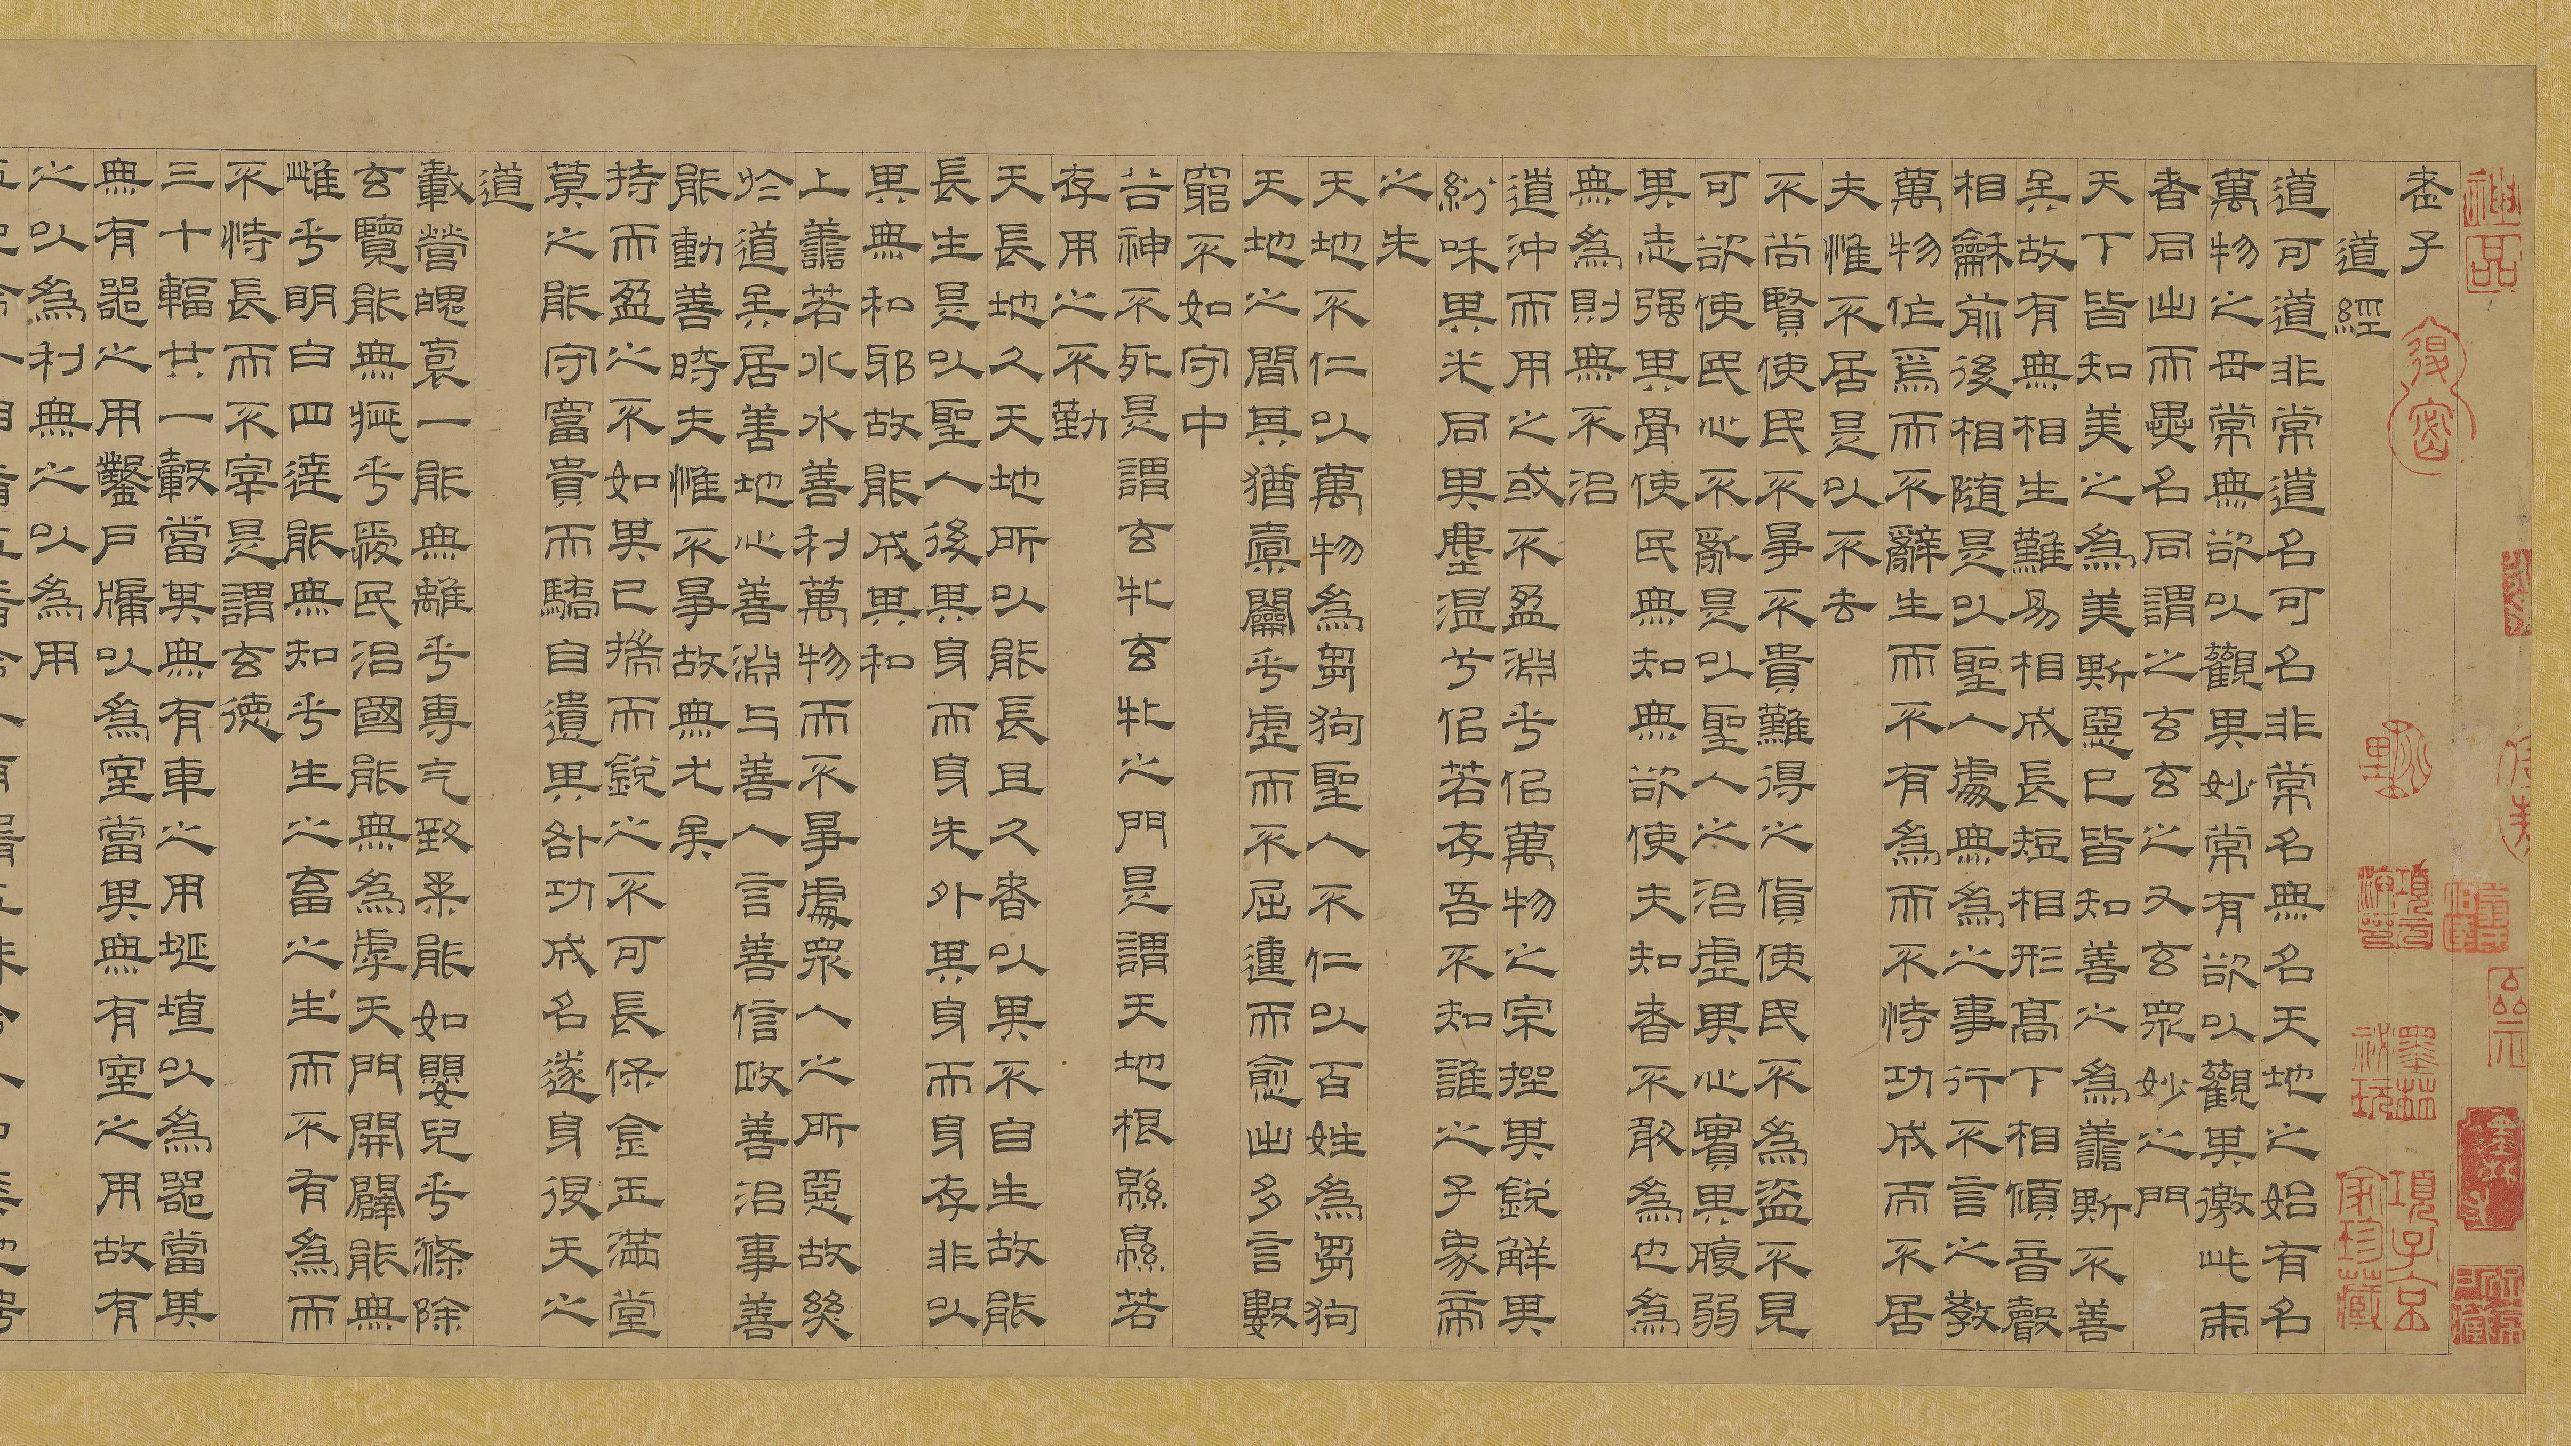 神品
老子
道經
道可道非常道名可名非常名無名天地之始有名
萬物之母常無欲以觀其妙常有欲以觀其徼此兩
者同出而異名同謂之玄玄之又玄眾妙之門
天下皆知美之為美斯惡已皆知善之為善斯不善
矣故有無相生難易相成長短相形高下相傾音聲
相龢前後相隨是以聖人處無為之事行不言之教
萬物作焉而不辭生而不有為而不恃功成而不居
夫惟不居是以不去
不尚賢使民不爭不貴難得之貨使民不為盜不見
可欲使民心不亂是以聖人之治虛其心實其腹弱
其志强其骨使民無知無欲使夫知者不敢為也為
無為則無不治
道沖而用之或不盈淵乎佀萬物之宗挫其銳解其
紛咊其光同其塵湛兮佀若存吾不知誰之子象帝
之先
天地不仁以萬物為芻狗聖人不仁以百姓為芻狗
天地之間其猶橐籥乎虛而不屈動而愈出多言數
窮不如守中
谷神不死是謂玄牝玄牝之門是謂天地根緜緜若
存用之不勤
天長地久天地所以能長且久者以其不自生故能
長生是以聖人後其身而身先外其身而身存非以
其無私邪故能成其私
上善若水水善利萬物而不爭處眾人之所惡故幾
於道矣居善地心善淵与善人言善信政善治事善
能動善時夫惟不爭故無尤矣
持而盈之不如其已揣而銳之不可長保金玉滿堂
莫之能守富貴而驕自遺其咎功成名遂身退天之
道
載營魄裒一能無離乎專气致柔能如嬰兒乎滌除
玄覽能無疵乎愛民治國能無為虖天門開闢能無
雌乎明白四達能無知乎生之畜之生而不有為而
不恃長而不宰是謂玄德
三十輻共一轂當其無有車之用埏埴以為器當其
無有器之用鑿戶牖以為室當其無有室之用故有
之以為利無之以為用
項子京家珍藏
墨林祕玩